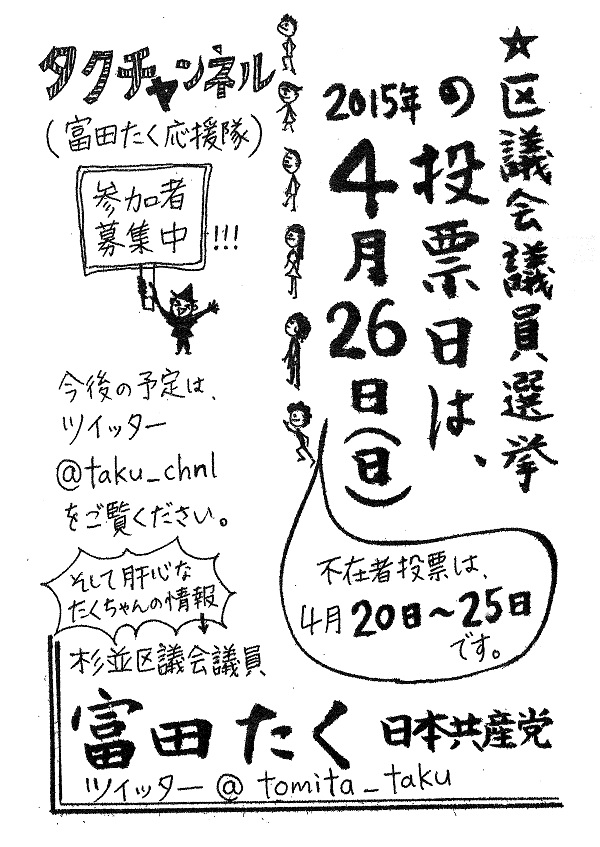 ★区議会議員選挙
の投票日は、
2015年
4月26日(日)
不在者投票は、
4月20日～25日
です。
タクチャンネル
(富田たく応援隊)
参加者
募集中
!!!
今後の予定は、
ツイッター
@taku_chnl
をご覧ください。
そして肝心な
たくちゃんの情報
↓
杉並区議会議員
富田たく 日本共産党
ツイッター@tomita_taku